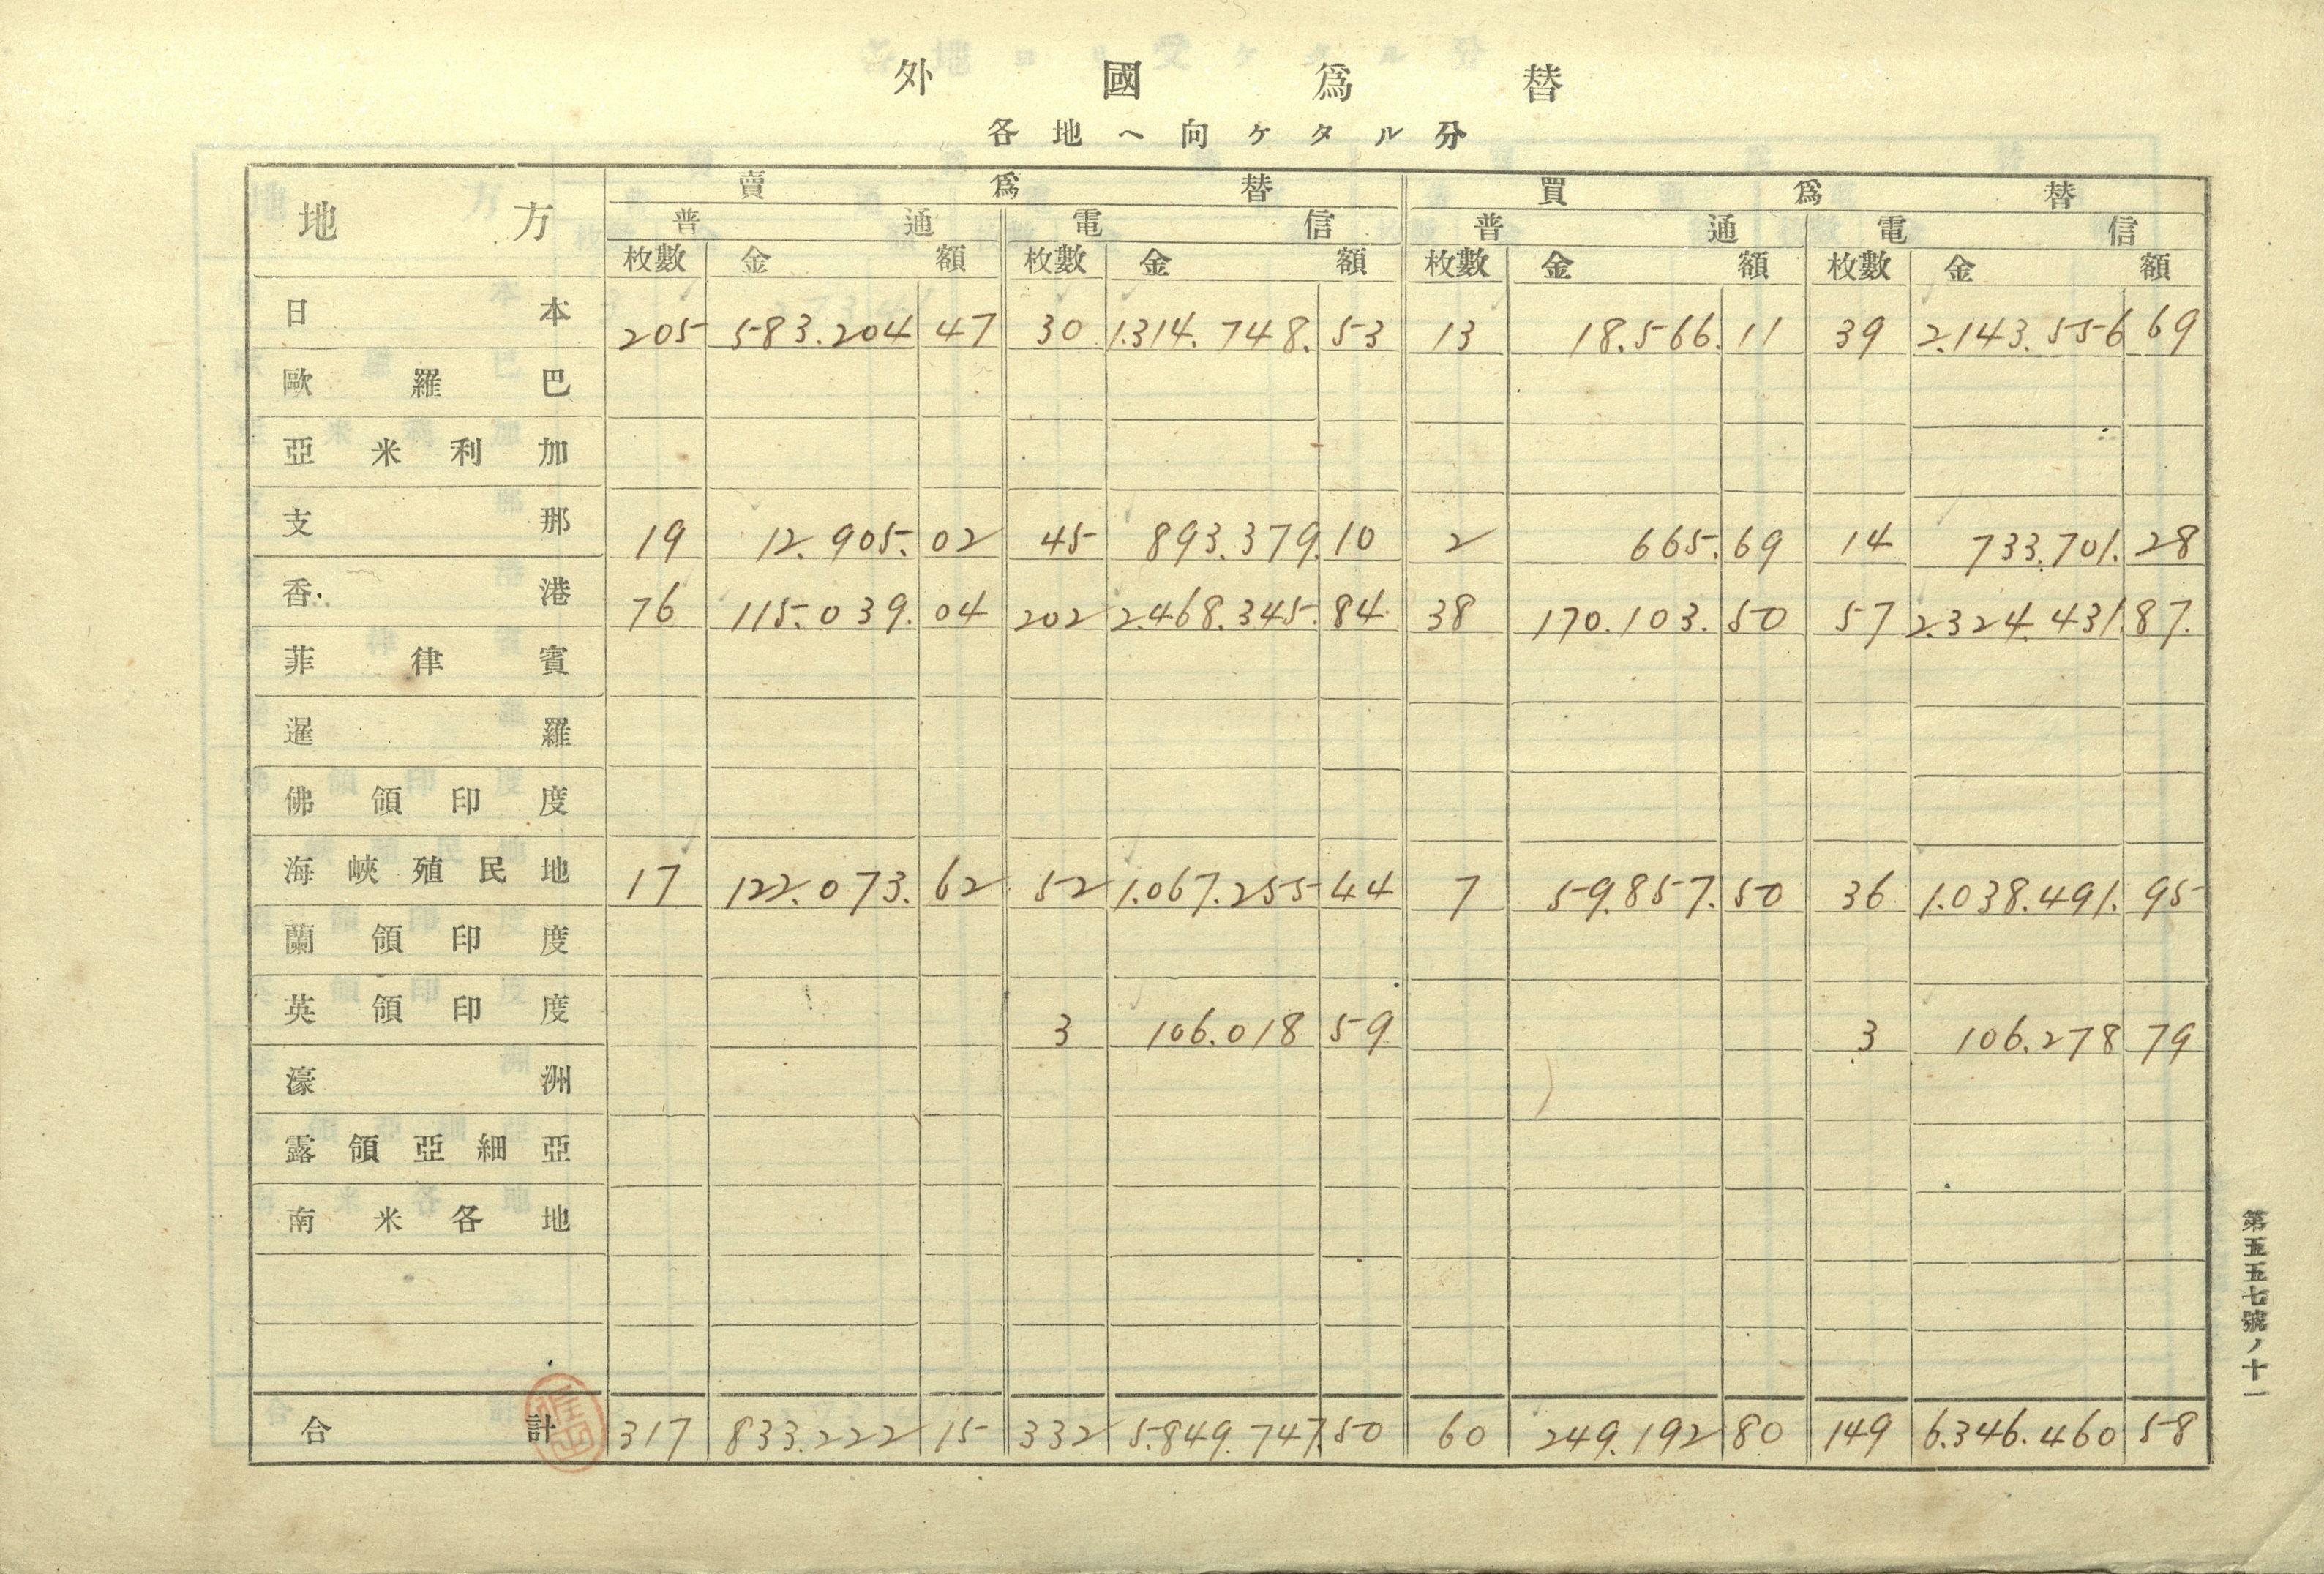 外國爲替
各地ヘ向ケタル分
地方 賣爲替 買爲替
普通 電信 普通 電信
枚數 金額 枚數 金額 枚數 金額 枚數 金額
日本 205 583.204 47 30 1.314.748. 53 13 18.566. 11 39 2.143.556 69
歐羅巴
亞米利加
支那 19 12.905. 02 45 893.379. 10 2 665. 69 14 733.701. 28
香港 76 115.039. 04 202 2.468.345. 84 38 170.103. 50 57 2.324.431. 87.
菲律賓
暹羅
佛領印度
海峽殖民地 17 122.073. 62 52 1.067.255 44 7 59.857. 50 36 1.038.491. 95
蘭領印度
英領印度 3 106.018 59 3 106.278 79
濠洲
露領亞細亞
南米各地
合計 317 833.222 15 332 5.849.747. 50 60 249.192 80 149 6.346.460 58
第五五七號ノ十一